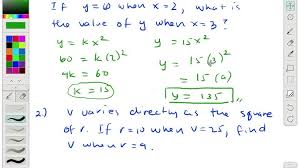 If y=60 when x=2, what is
the value of y when x=3?
y = kx² y = 15x²
60 = k(2)² y = 15(3)²
4k = 60 = 15(9)
k = 15 y = 135
2) V varies directly as the square
of r. If r=10 when V=25, find
V when r=9.